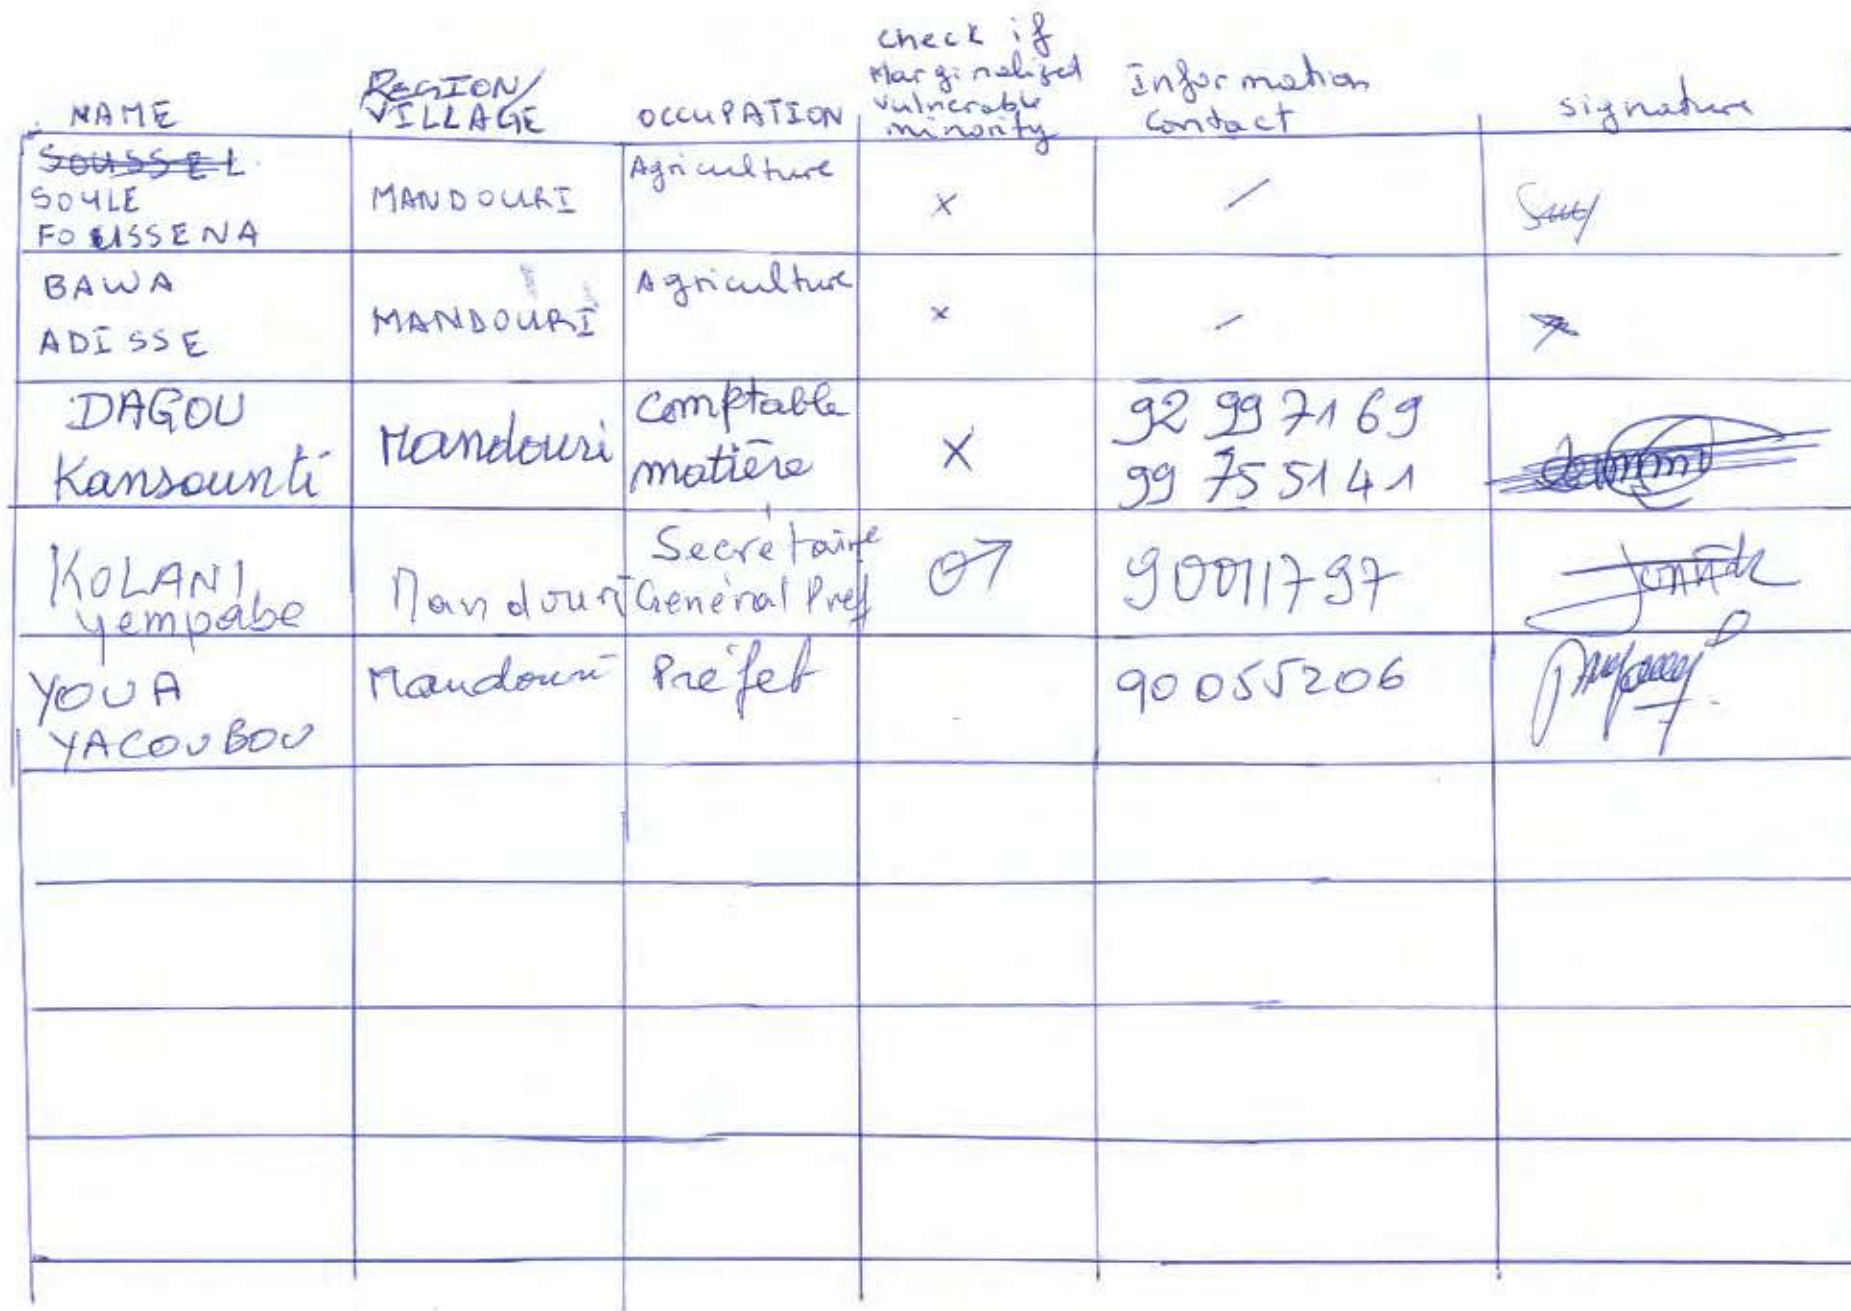 NAME REGION/VILLAGE OCCUPATION check if Marginalized vulnerable minority Information Contact signature
SOUSSEL
SOULE
FOUSSENA MANDOURI Agriculture x /
BAWA
ADISSE MANDOURI Agriculture x /
DAGOU
Kansounti Mandouri Comptable matière X 92 99 71 69
99 75 51 41
KOLANI
yempabe Mandouri Secrétaire Général Pref 90011797
YOUA
YACOUBOU Mandouri Préfet 90 055206